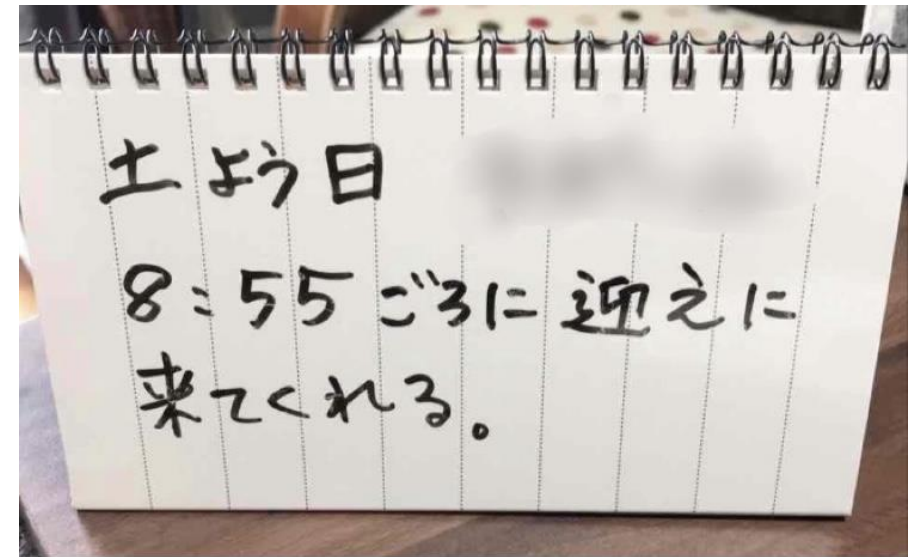 土よう日
8:55ごろに迎えに
来てくれる。